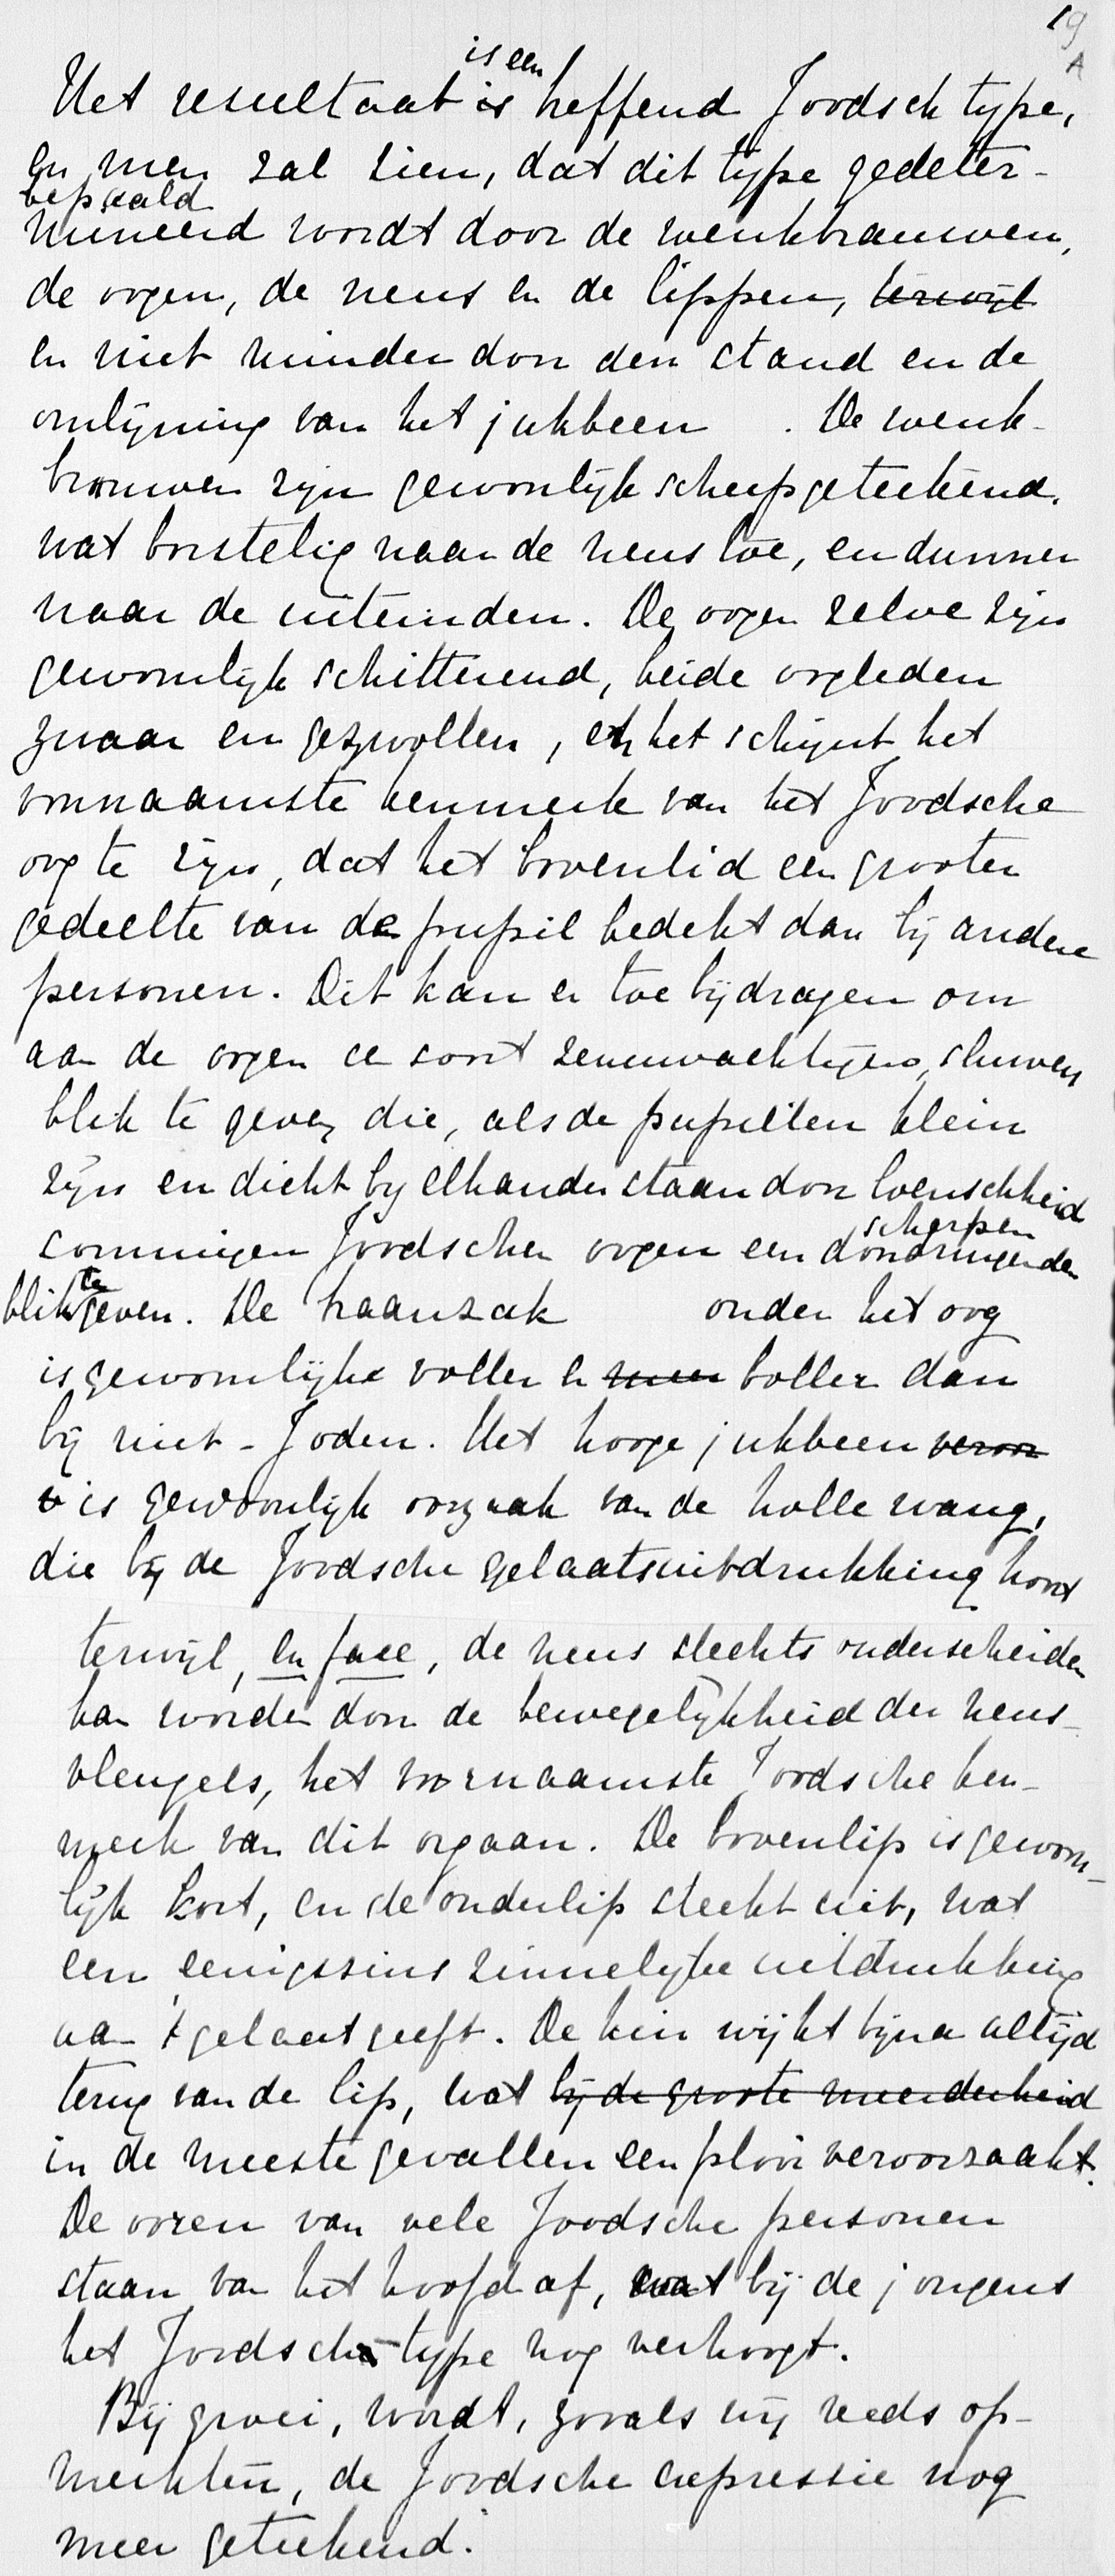 19
A
is een
Het resultaat is treffend Joodsch type,
en men zal zien, dat dit type gedeter-
bepaald
mineerd wordt door de wenkbrauwen,
de oogen, de neus en de lippen, terwijl
en niet minder door den stand en de
omlijning van het jukbeen . De wenk-
brauwen zijn gewoonlijk scherp geteekend,
wat borstelig naar de neus toe, en dunner
naar de uiteinden. De oogen zelve zijn
gewoonlijk schitterend, beide oogleden
zwaar en gezwollen, en het schijnt het
voornaamste kenmerk van het Joodsche
oog te zijn, dat het bovenlid een grooter
gedeelte van de pupil bedekt dan bij andere
personen. Dit kan er toe bijdragen om
aan de oogen ee soort zenuwachtigen, sluwen
blik te geven die, als de pupillen klein
zijn en dicht bij elkander staan door loenschheid
scherpen
sommigen Joodschen oogen een doordringenden
te
blik geven. De traanzak onder het oog
is gewoonlijk voller en meer boller dan
bij niet-Joden. Het hooge jukbeen veroor
is gewoonlijk oorzaak van de holle wang,
die bij de Joodsche gelaatsuitdrukking hoort
terwijl, en face, de neus slechts onderscheiden
kan worden door de bewegelijkheid der neus-
vleugels, het voornaamste Joodsche ken-
merk van dit orgaan. De bovenlip is gewoon-
lijk kort, en de onderlip steekt uit, wat
een eenigszins zinnelijke uitdrukking
aan 't gelaat geeft. De kin wijkt bijna altijd
terug van de lip, wat bij de groote meerderheid
in de meeste gevallen een plooi veroorzaakt.
De ooren van vele Joodsche personen
staan van het hoofd af, wat bij de jongens
het Joodsche type nog verhoogt.
Bij groei, wordt, zooals wij reeds op-
merkten, de Joodsche expressie nog
meer geteekend.